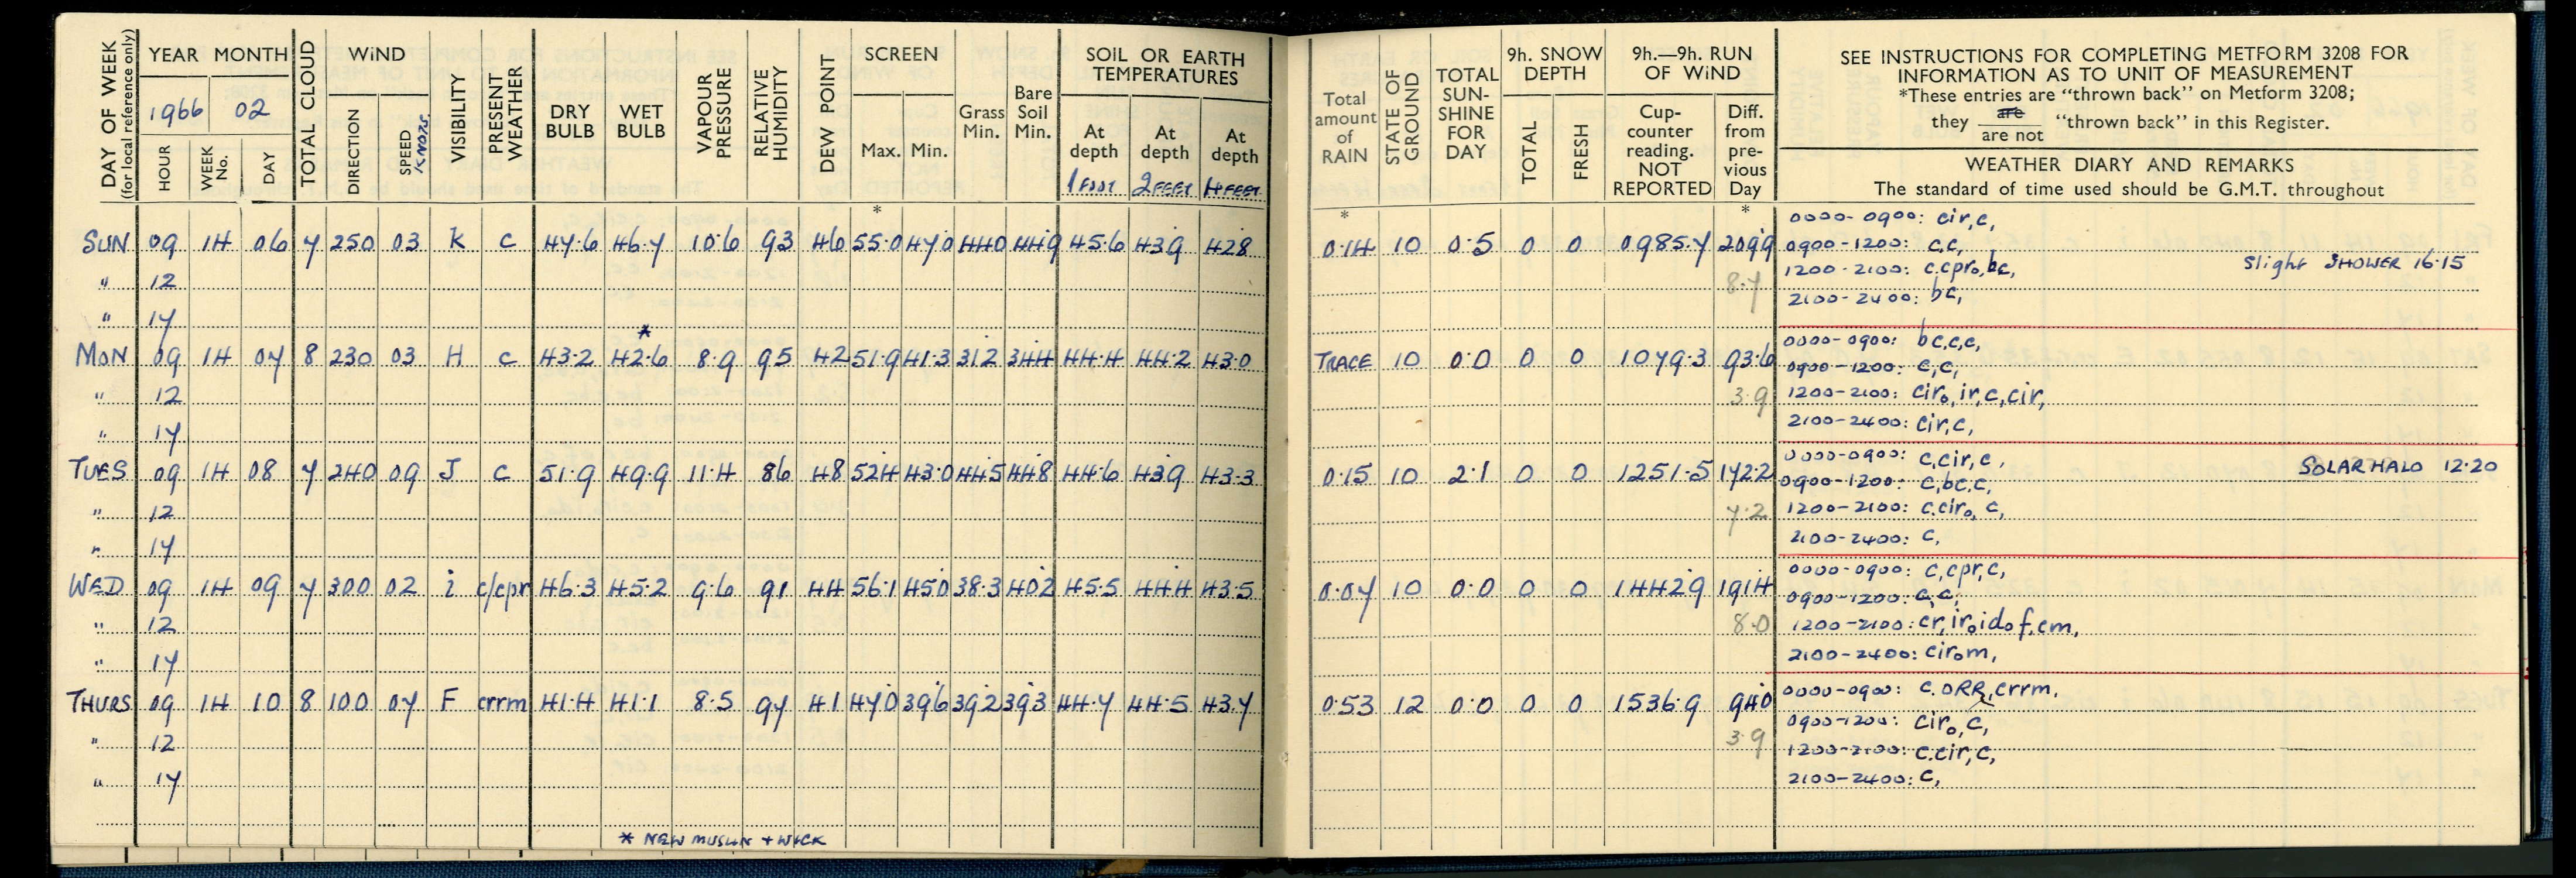 DAY OF WEEK
(for local reference only)
YEAR MONTH
1966 02
HOUR
WEEK No.
DAY
TOTAL CLOUD
WIND
DIRECTION
SPEED
KNOTS
VISIBILITY
PRESENT WEATHER
DRY BULB
WET BULB
VAPOUR PRESSURE
RELATIVE HUMIDITY
DEW POINT
SCREEN
Max. Min.
Grass Min.
Bare Soil Min.
SOIL OR EARTH
TEMPERATURES
At depth 1 FOOT
At depth 2 FEET
At depth 4 FEET
Total amount of RAIN
STATE OF GROUND
TOTAL SUN-SHINE FOR DAY
9h. SNOW DEPTH
TOTAL
FRESH
9h.—9h. RUN OF WIND
Cup-counter reading. NOT REPORTED
Diff. from pre-vious Day
SEE INSTRUCTIONS FOR COMPLETING METFORM 3208 FOR
INFORMATION AS TO UNIT OF MEASUREMENT
*These entries are “thrown back” on Metform 3208;
they are / are not “thrown back” in this Register.
WEATHER DIARY AND REMARKS
The standard of time used should be G.M.T. throughout
* * *
SUN 09 14 06 7 250 03 K c 47.6 46.7 10.6 93 46 55.0 47.0 44.0 44.9 45.6 43.9 42.8 0.14 10 0.5 0 0 0985.7 209.9
8.7
0000-0900: cir,c,
0900-1200: c,c,
1200-2100: c.cpro,bc, Slight SHOWER 16.15
2100-2400: bc,
" 12
" 17
*
MON 09 14 07 8 230 03 H c 43.2 42.6 8.9 95 42 51.9 41.3 31.2 34.4 44.4 44.2 43.0 TRACE 10 0.0 0 0 1079.3 93.6
3.9
0000-0900: bc,c,c,
0900-1200: c,c,
1200-2100: ciro,ir,c,cir,
2100-2400: cir,c,
" 12
" 17
TUES 09 14 08 7 240 09 J c 51.9 49.9 11.4 86 48 52.4 43.0 44.5 44.8 44.6 43.9 43.3 0.15 10 2.1 0 0 1251.5 172.2
7.2
0000-0900: c,cir,c, SOLAR HALO 12.20
0900-1200: c,bc,c,
1200-2100: c.ciro, c,
2100-2400: c,
" 12
" 17
WED 09 14 09 7 300 02 i c/cpr 46.3 45.2 9.6 91 44 56.1 45.0 38.3 40.2 45.5 44.4 43.5 0.07 10 0.0 0 0 1442.9 191.4
8.0
0000-0900: c,cpr,c,
0900-1200: c,c,
1200-2100: cr,iroidof,cm,
2100-2400: cirom,
" 12
" 17
THURS 09 14 10 8 100 07 F crrm 41.4 41.1 8.5 97 41 47.0 39.6 39.2 39.3 44.7 44.5 43.7 0.53 12 0.0 0 0 1536.9 94.0
3.9
0000-0900: c.oRR,crrm,
0900-1200: ciro,c,
1200-2100: c.cir,c,
2100-2400: c,
" 12
" 17
* NEW MUSLIN + WICK